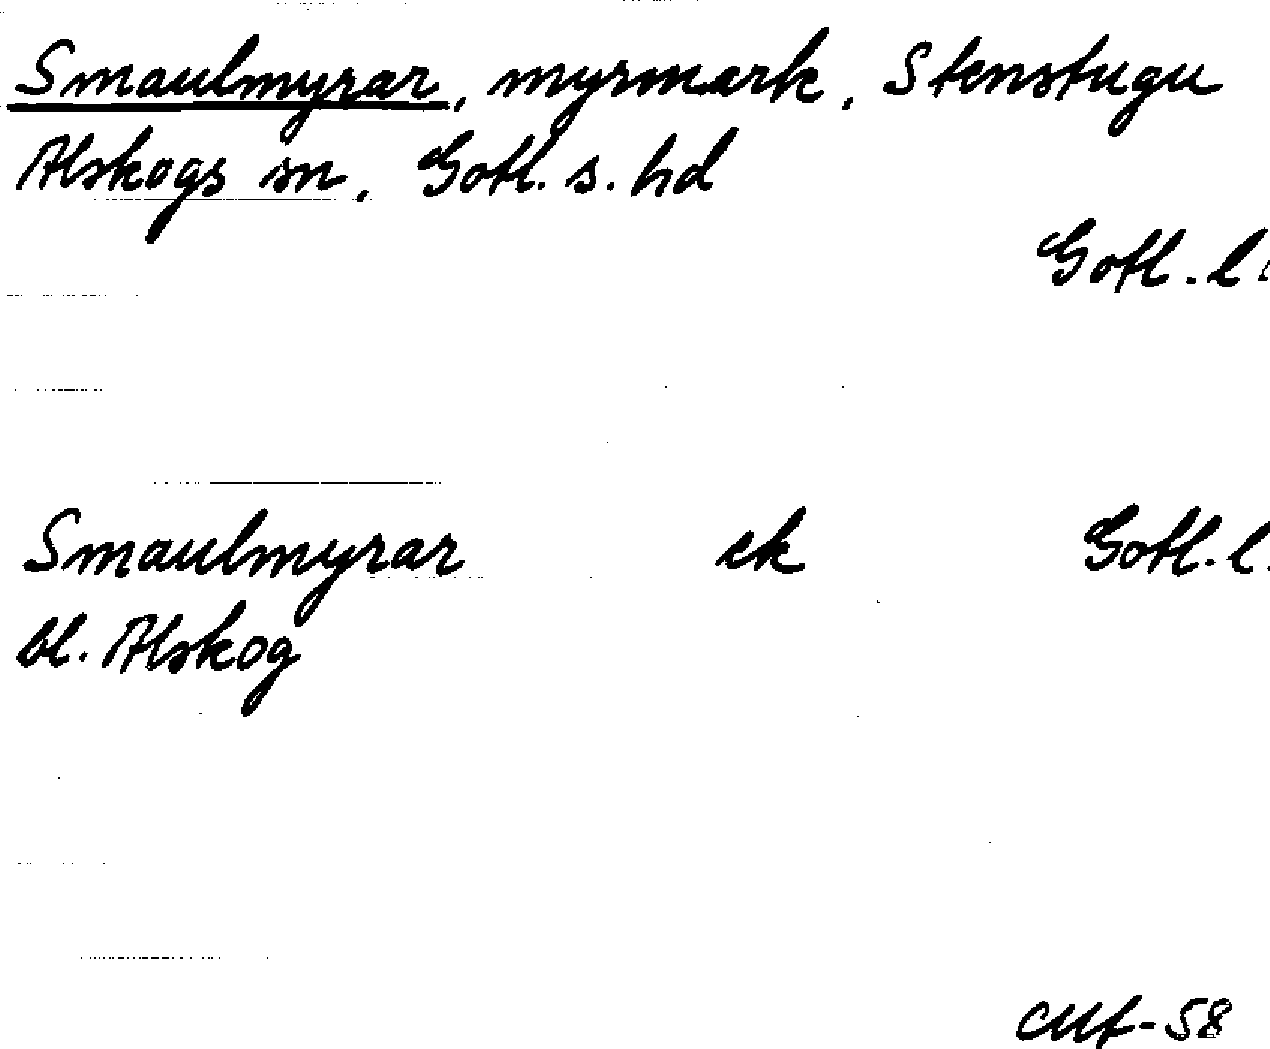 Smaulmyrar, myrmark, Stenstugu
Alskogs sn, Gotl. s. hd
Gotl. l
Smaulmyrar ek Gotl. l.
bl. Alskog
CMf-58